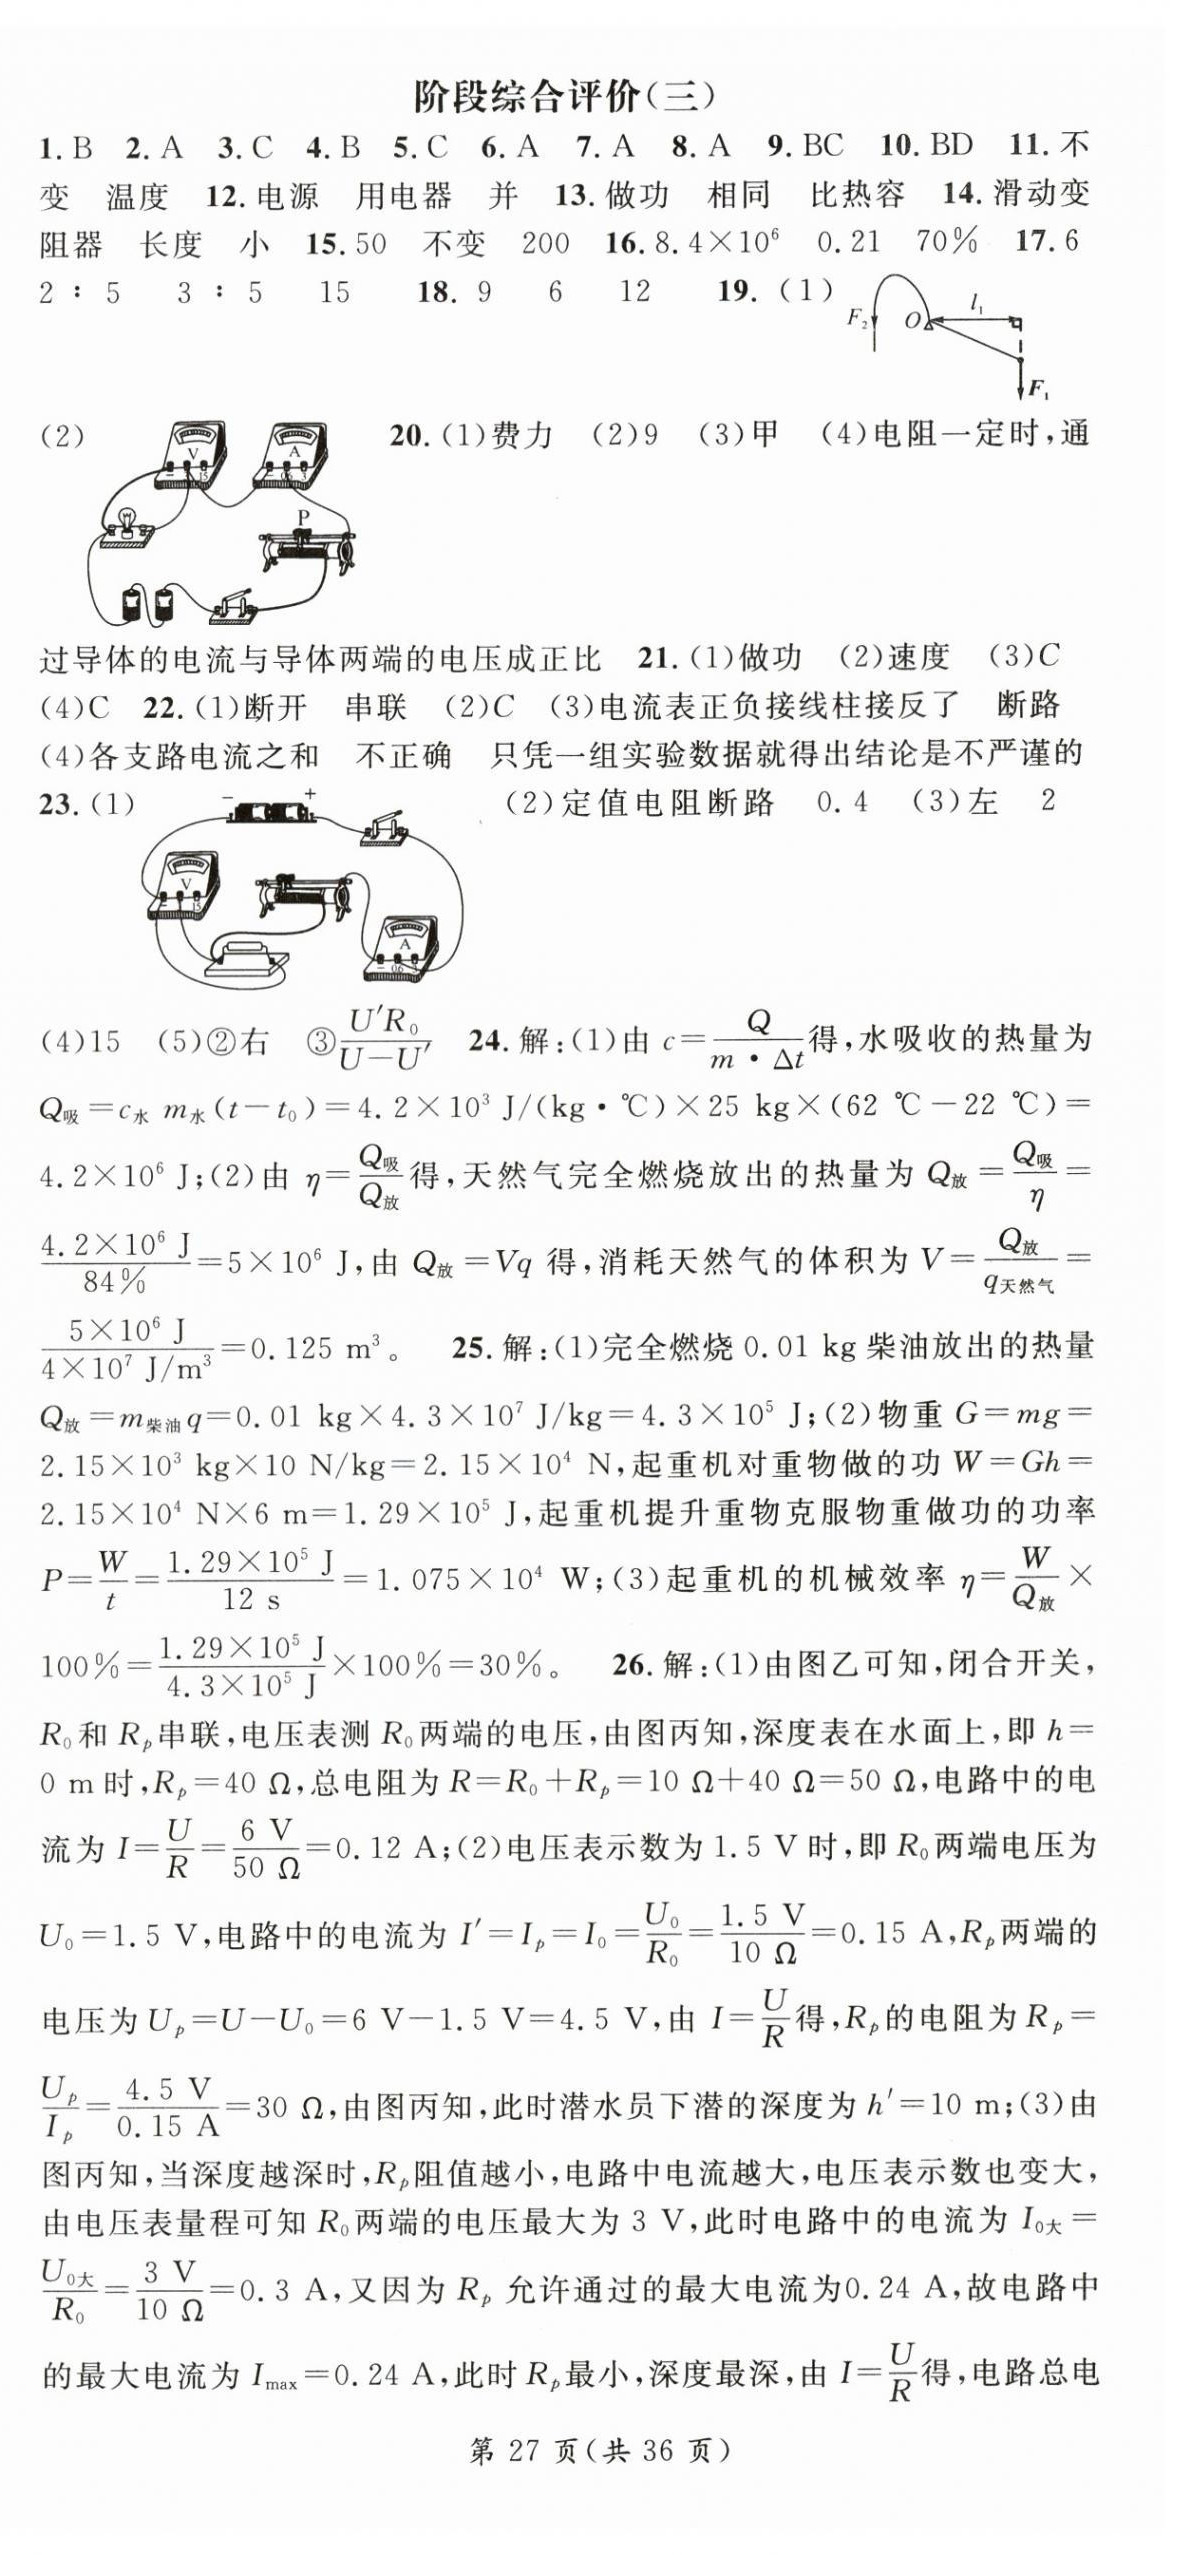 阶段综合评价(三)
1. B 2. A 3. C 4. B 5. C 6. A 7. A 8. A 9. BC 10. BD 11. 不
变 温度 12. 电源 用电器 并 13. 做功 相同 比热容 14. 滑动变
阻器 长度 小 15. 50 不变 200 16. 8.4×10⁶ 0.21 70% 17. 6
2∶5 3∶5 15 18. 9 6 12 19. (1)
F₂ O l₁ F₁
(2) 20. (1)费力 (2)9 (3)甲 (4)电阻一定时,通
V A P
过导体的电流与导体两端的电压成正比 21. (1)做功 (2)速度 (3)C
(4)C 22. (1)断开 串联 (2)C (3)电流表正负接线柱接反了 断路
(4)各支路电流之和 不正确 只凭一组实验数据就得出结论是不严谨的
23. (1) (2)定值电阻断路 0.4 (3)左 2
− + V A
(4)15 (5)②右 ③U′R₀/(U−U′) 24. 解:(1)由 c=Q/(m·Δt)得,水吸收的热量为
Q吸=c水 m水(t−t₀)=4.2×10³ J/(kg·℃)×25 kg×(62 ℃−22 ℃)=
4.2×10⁶ J;(2)由 η=Q吸/Q放得,天然气完全燃烧放出的热量为 Q放=Q吸/η=
4.2×10⁶ J/84%=5×10⁶ J,由 Q放=Vq 得,消耗天然气的体积为 V=Q放/q天然气=
5×10⁶ J/(4×10⁷ J/m³)=0.125 m³。 25. 解:(1)完全燃烧 0.01 kg 柴油放出的热量
Q放=m柴油q=0.01 kg×4.3×10⁷ J/kg=4.3×10⁵ J;(2)物重 G=mg=
2.15×10³ kg×10 N/kg=2.15×10⁴ N,起重机对重物做的功 W=Gh=
2.15×10⁴ N×6 m=1.29×10⁵ J,起重机提升重物克服物重做功的功率
P=W/t=1.29×10⁵ J/12 s=1.075×10⁴ W;(3)起重机的机械效率 η=W/Q放×
100%=1.29×10⁵ J/4.3×10⁵ J×100%=30%。 26. 解:(1)由图乙可知,闭合开关,
R₀和 Rp串联,电压表测 R₀两端的电压,由图丙知,深度表在水面上,即 h=
0 m 时,Rp=40 Ω,总电阻为 R=R₀+Rp=10 Ω+40 Ω=50 Ω,电路中的电
流为 I=U/R=6 V/50 Ω=0.12 A;(2)电压表示数为 1.5 V 时,即 R₀两端电压为
U₀=1.5 V,电路中的电流为 I′=Ip=I₀=U₀/R₀=1.5 V/10 Ω=0.15 A,Rp两端的
电压为 Up=U−U₀=6 V−1.5 V=4.5 V,由 I=U/R得,Rp的电阻为 Rp=
Up/Ip=4.5 V/0.15 A=30 Ω,由图丙知,此时潜水员下潜的深度为 h′=10 m;(3)由
图丙知,当深度越深时,Rp阻值越小,电路中电流越大,电压表示数也变大,
由电压表量程可知 R₀两端的电压最大为 3 V,此时电路中的电流为 I₀大=
U₀大/R₀=3 V/10 Ω=0.3 A,又因为 Rp 允许通过的最大电流为0.24 A,故电路中
的最大电流为 Imax=0.24 A,此时 Rp最小,深度最深,由 I=U/R得,电路总电
第 27 页(共 36 页)